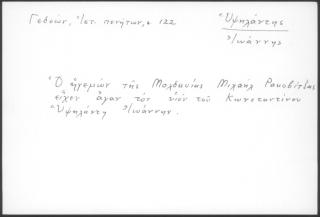 Γεδεών, Ἱστ. πενήτων, σ 122
Ὑψηλάντης
Ἰωάννης
Ὁ ἡγεμὼν τῆς Μολδαυίας Μιχαὴλ Ρακοβίτζας
εἶχεν ἄγαν τὸν υἱὸν τοῦ Κωνσταντίνου
Ὑψηλάντη Ἰωάννην.